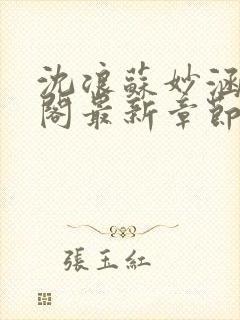 沈浪蘇妙涵
閣最新章節
張玉紅